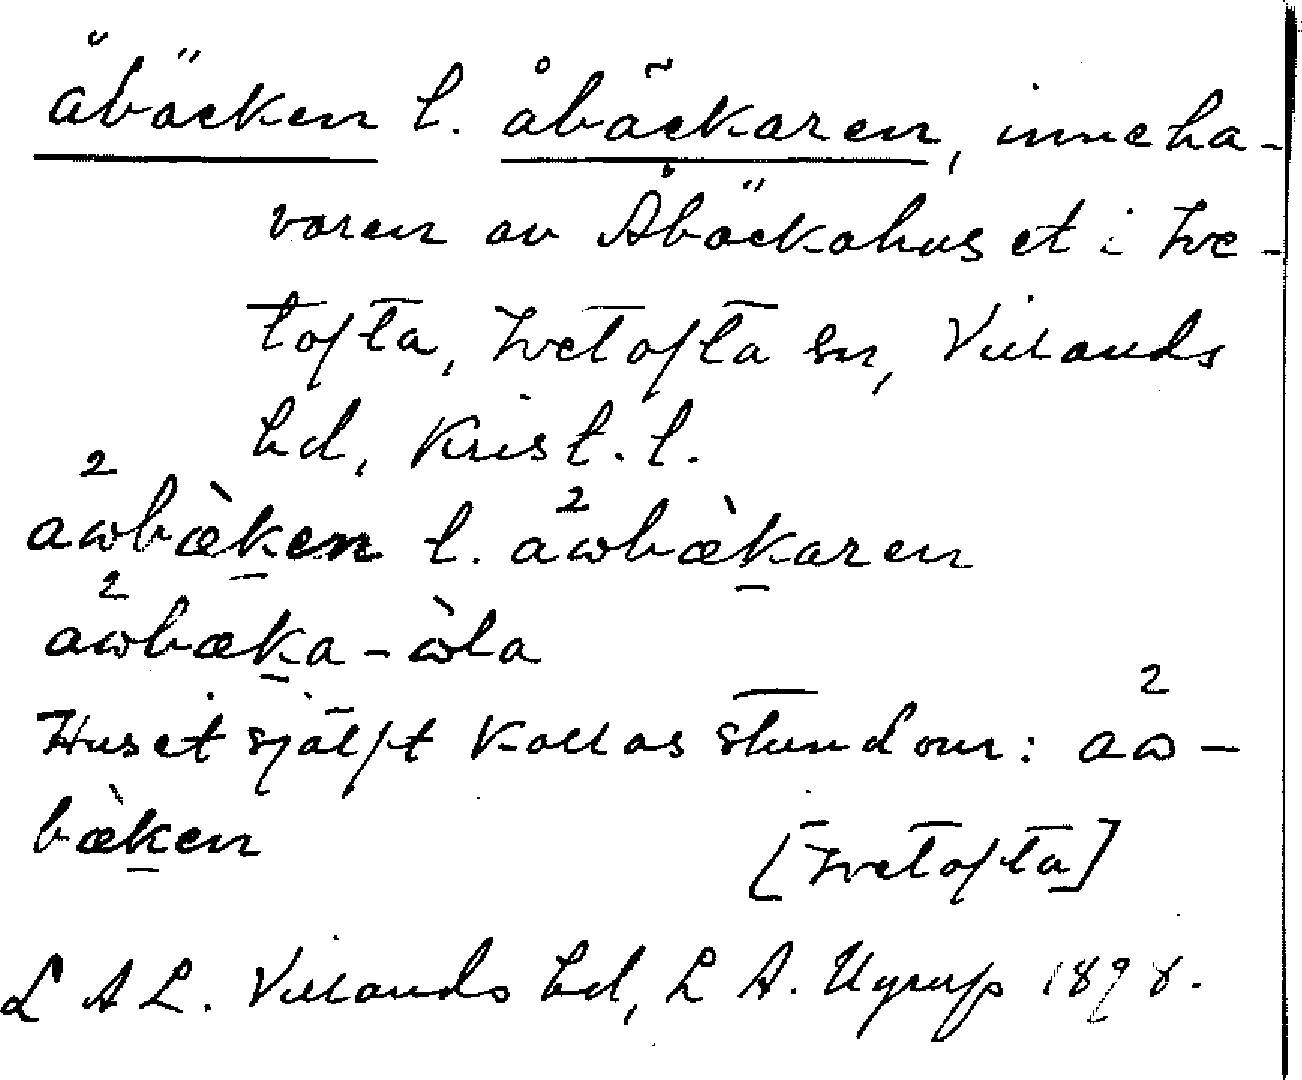 åbäcken l. åbäckaren, inneha-
varen av Åbäckahuset i Ive-
tofta, Ivetofta sn, Villands
hd, Krist. l.
aω²bæ̀ḵen l. aω²bæ̀ḵaren
aω²bæḵa-ὼla
Huset självt kallas stundom: aω²-
bæ̀ḵen
[Ivetofta]
LAL. Villands hd, L A. Ugrup 1898.